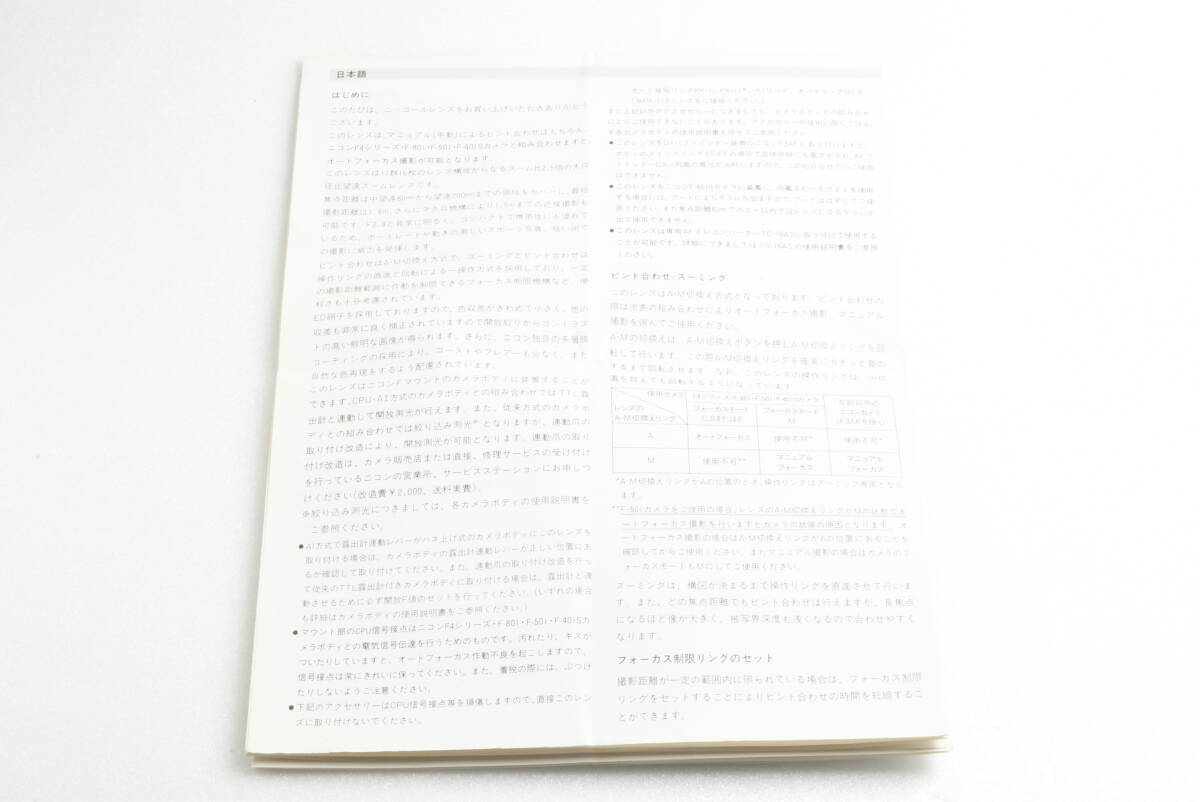 日本語
はじめに
このたびは、ニッコールレンズをお買い上げいただきありがとう
ございます。
このレンズは、マニュアル(手動)によるピント合わせはもちろん、
ニコンF4シリーズ・F-801・F-501・F-401Sカメラと組み合わせますと、
オートフォーカス撮影が可能となります。
このレンズは11群16枚のレンズ構成からなるズーム比2.5倍の大口
径比望遠ズームレンズです。
焦点距離は中望遠80mmから望遠200mmまでの領域をカバーし、最短
撮影距離は1.8m、さらにマクロ機構により1.5mまでの近接撮影も
可能です。F2.8と非常に明るく、コンパクトで携帯性にも優れて
いるため、ポートレートや動きの激しいスポーツ写真、暗い所で
の撮影に威力を発揮します。
ピント合わせはA-M切換え方式で、ズーミングとピント合わせは
操作リングの直進と回転による一操作方式を採用しており、一定
の撮影距離範囲に作動を制限できるフォーカス制限機構など、便
利さも十分考慮されています。
ED硝子を採用しておりますので、色収差がきわめて小さく、他の
収差も非常に良く補正されていますので開放絞りからコントラス
トの高い鮮明な画像が得られます。さらに、ニコン独自の多層膜
コーティングの採用により、ゴーストやフレアーも少なく、また
自然な色再現をするよう配慮されています。
このレンズはニコンFマウントのカメラボディに装着することが
できます。CPU・AI方式のカメラボディとの組み合わせではTTL露
出計と連動して開放測光が行えます。また、従来方式のカメラボ
ディとの組み合わせでは絞り込み測光※となりますが、連動爪の
取り付け改造により、開放測光が可能となります。連動爪の取り
付け改造は、カメラ販売店または直接、修理サービスの受け付け
を行っているニコンの営業所、サービスステーションにお申しつ
けください(改造費¥2,000、送料実費)。
※絞り込み測光につきましては、各カメラボディの使用説明書を
ご参照ください。
●AI方式で露出計連動レバーがハネ上げ式のカメラボディにこのレンズを
取り付ける場合は、カメラボディの露出計連動レバーが正しい位置にあ
るか確認して取り付けてください。また、連動爪の取り付け改造を行っ
て従来のTTL露出計付きカメラボディに取り付ける場合は、露出計と連
動させるために必ず開放F値のセットを行ってください。(いずれの場合
も詳細はカメラボディの使用説明書をご参照ください。)
●マウント部のCPU信号接点はニコンF4シリーズ・F-801・F-501・F-401Sカ
メラボディとの電気信号伝達を行うためのものです。汚れたり、キズが
ついたりしていますと、オートフォーカス作動不良を起こしますので、
信号接点は常にきれいに保ってください。また、着脱の際には、ぶつけ
たりしないようご注意ください。
●下記のアクセサリーはCPU信号接点等を損傷しますので、直接このレン
ズに取り付けないでください。
また上記以外のアクセサリーにつきましても、カメラボディとの組み合せ
によりご使用できないことがあります。アクセサリーの使用に際しては必
ず各カメラボディの使用説明書も併せてご参照ください。
はできません。
●このレンズをニコンF-401Sカメラに装着し、内蔵スピードライトを使用
する場合には、フードによりケラレが出ますので、フードははずしてご使
出て使用できません。
●このレンズは専用AFテレコンバーターTC-16ASに取り付けて使用する
ことが可能です。詳細につきましてはTC-16ASの使用説明書をご参照
ください。
ピント合わせ/ズーミング
このレンズはA-M切換え方式となっております。ピント合わせの
際は次表の組み合わせによりオートフォーカス撮影、マニュアル
撮影を選んでご使用ください。
A-Mの切換えは、A-M切換えボタンを押しA-M切換えリングを回
転して行います。この際A-M切換えリングを確実にカチッと音の
するまで回転させます。なお、このレンズの操作リングは、∞位
置を越えても回転するようになっています。
使用カメラ F4シリーズ・F-801・F-501・F-401Sカメラ 左記以外の
レンズの フォーカスモード フォーカスモード ニコンカメラ
A-M切換えリング CSまたはA M (F3AFを除く)
A オートフォーカス 使用不可* 使用不可*
M 使用不可** マニュアル マニュアル
フォーカス フォーカス
*A-M切換えリングがAの位置のとき、操作リングはズーミング専用となり
ます。
**F-501カメラをご使用の場合、レンズのA-M切換えリングがMの状態でオ
ートフォーカス撮影を行いますとカメラの故障の原因となります。オ
ートフォーカス撮影の場合はA-M切換えリングがAの位置にあることを
確認してからご使用ください。またマニュアル撮影の場合はカメラのフ
ォーカスモードもMにしてご使用ください。
ズーミングは、構図が決まるまで操作リングを直進させて行いま
す。また、どの焦点距離でもピント合わせは行えますが、長焦点
になるほど像が大きく、被写界深度も浅くなるので合わせやすく
なります。
フォーカス制限リングのセット
撮影距離が一定の範囲内に限られている場合は、フォーカス制限
リングをセットすることによりピント合わせの時間を短縮するこ
とができます。